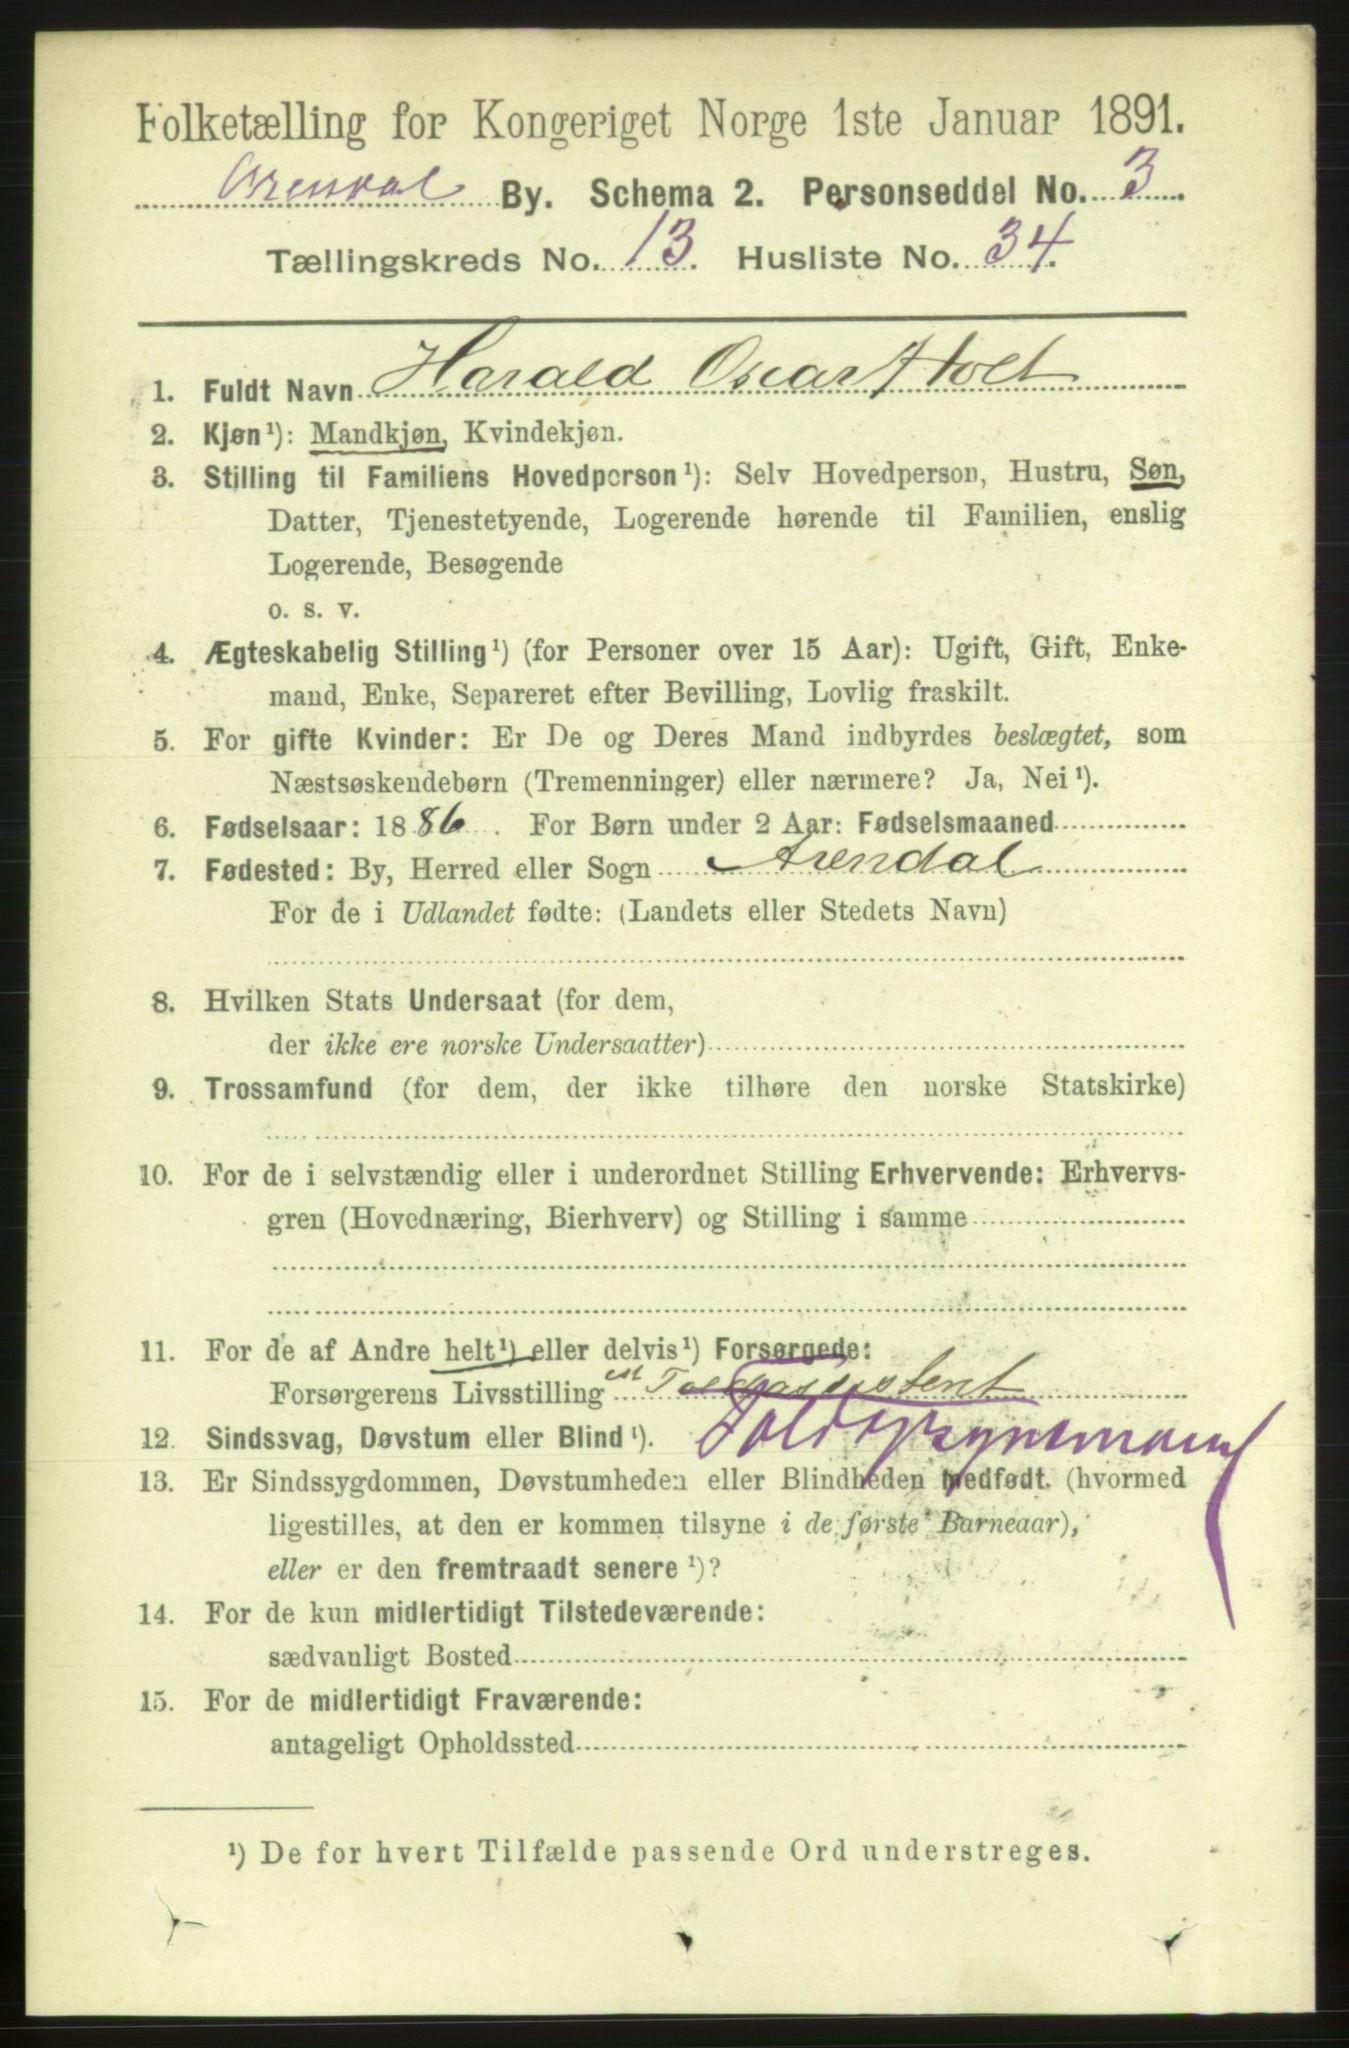 Folketælling for Kongeriget Norge 1ste Januar 1891.
Arendal By. Schema 2. Personseddel No. 3.
Tællingskreds No. 13. Husliste No. 34.
1. Fuldt Navn Harald Oscar Holt
2. Kjøn¹): Mandkjøn, Kvindekjøn.
3. Stilling til Familiens Hovedperson¹): Selv Hovedperson, Hustru, Søn,
Datter, Tjenestetyende, Logerende hørende til Familien, enslig
Logerende, Besøgende
o. s. v.
4. Ægteskabelig Stilling¹) (for Personer over 15 Aar): Ugift, Gift, Enke-
mand, Enke, Separeret efter Bevilling, Lovlig fraskilt.
5. For gifte Kvinder: Er De og Deres Mand indbyrdes beslægtet, som
Næstsøskendebørn (Tremenninger) eller nærmere? Ja, Nei¹).
6. Fødselsaar: 1886. For Børn under 2 Aar: Fødselsmaaned
7. Fødested: By, Herred eller Sogn Arendal
For de i Udlandet fødte: (Landets eller Stedets Navn)
8. Hvilken Stats Undersaat (for dem,
der ikke ere norske Undersaatter)
9. Trossamfund (for dem, der ikke tilhøre den norske Statskirke)
10. For de i selvstændig eller i underordnet Stilling Erhvervende: Erhvervs-
gren (Hovednæring, Bierhverv) og Stilling i samme
11. For de af Andre helt¹) eller delvis¹) Forsørgede:
Forsørgerens Livsstilling Toldassistent
Toldopsynsmand
12. Sindssvag, Døvstum eller Blind¹).
13. Er Sindssygdommen, Døvstumheden eller Blindheden medfødt. (hvormed
ligestilles, at den er kommen tilsyne i de første Barneaar),
eller er den fremtraadt senere¹)?
14. For de kun midlertidigt Tilstedeværende:
sædvanligt Bosted
15. For de midlertidigt Fraværende:
antageligt Opholdssted
¹) De for hvert Tilfælde passende Ord understreges.